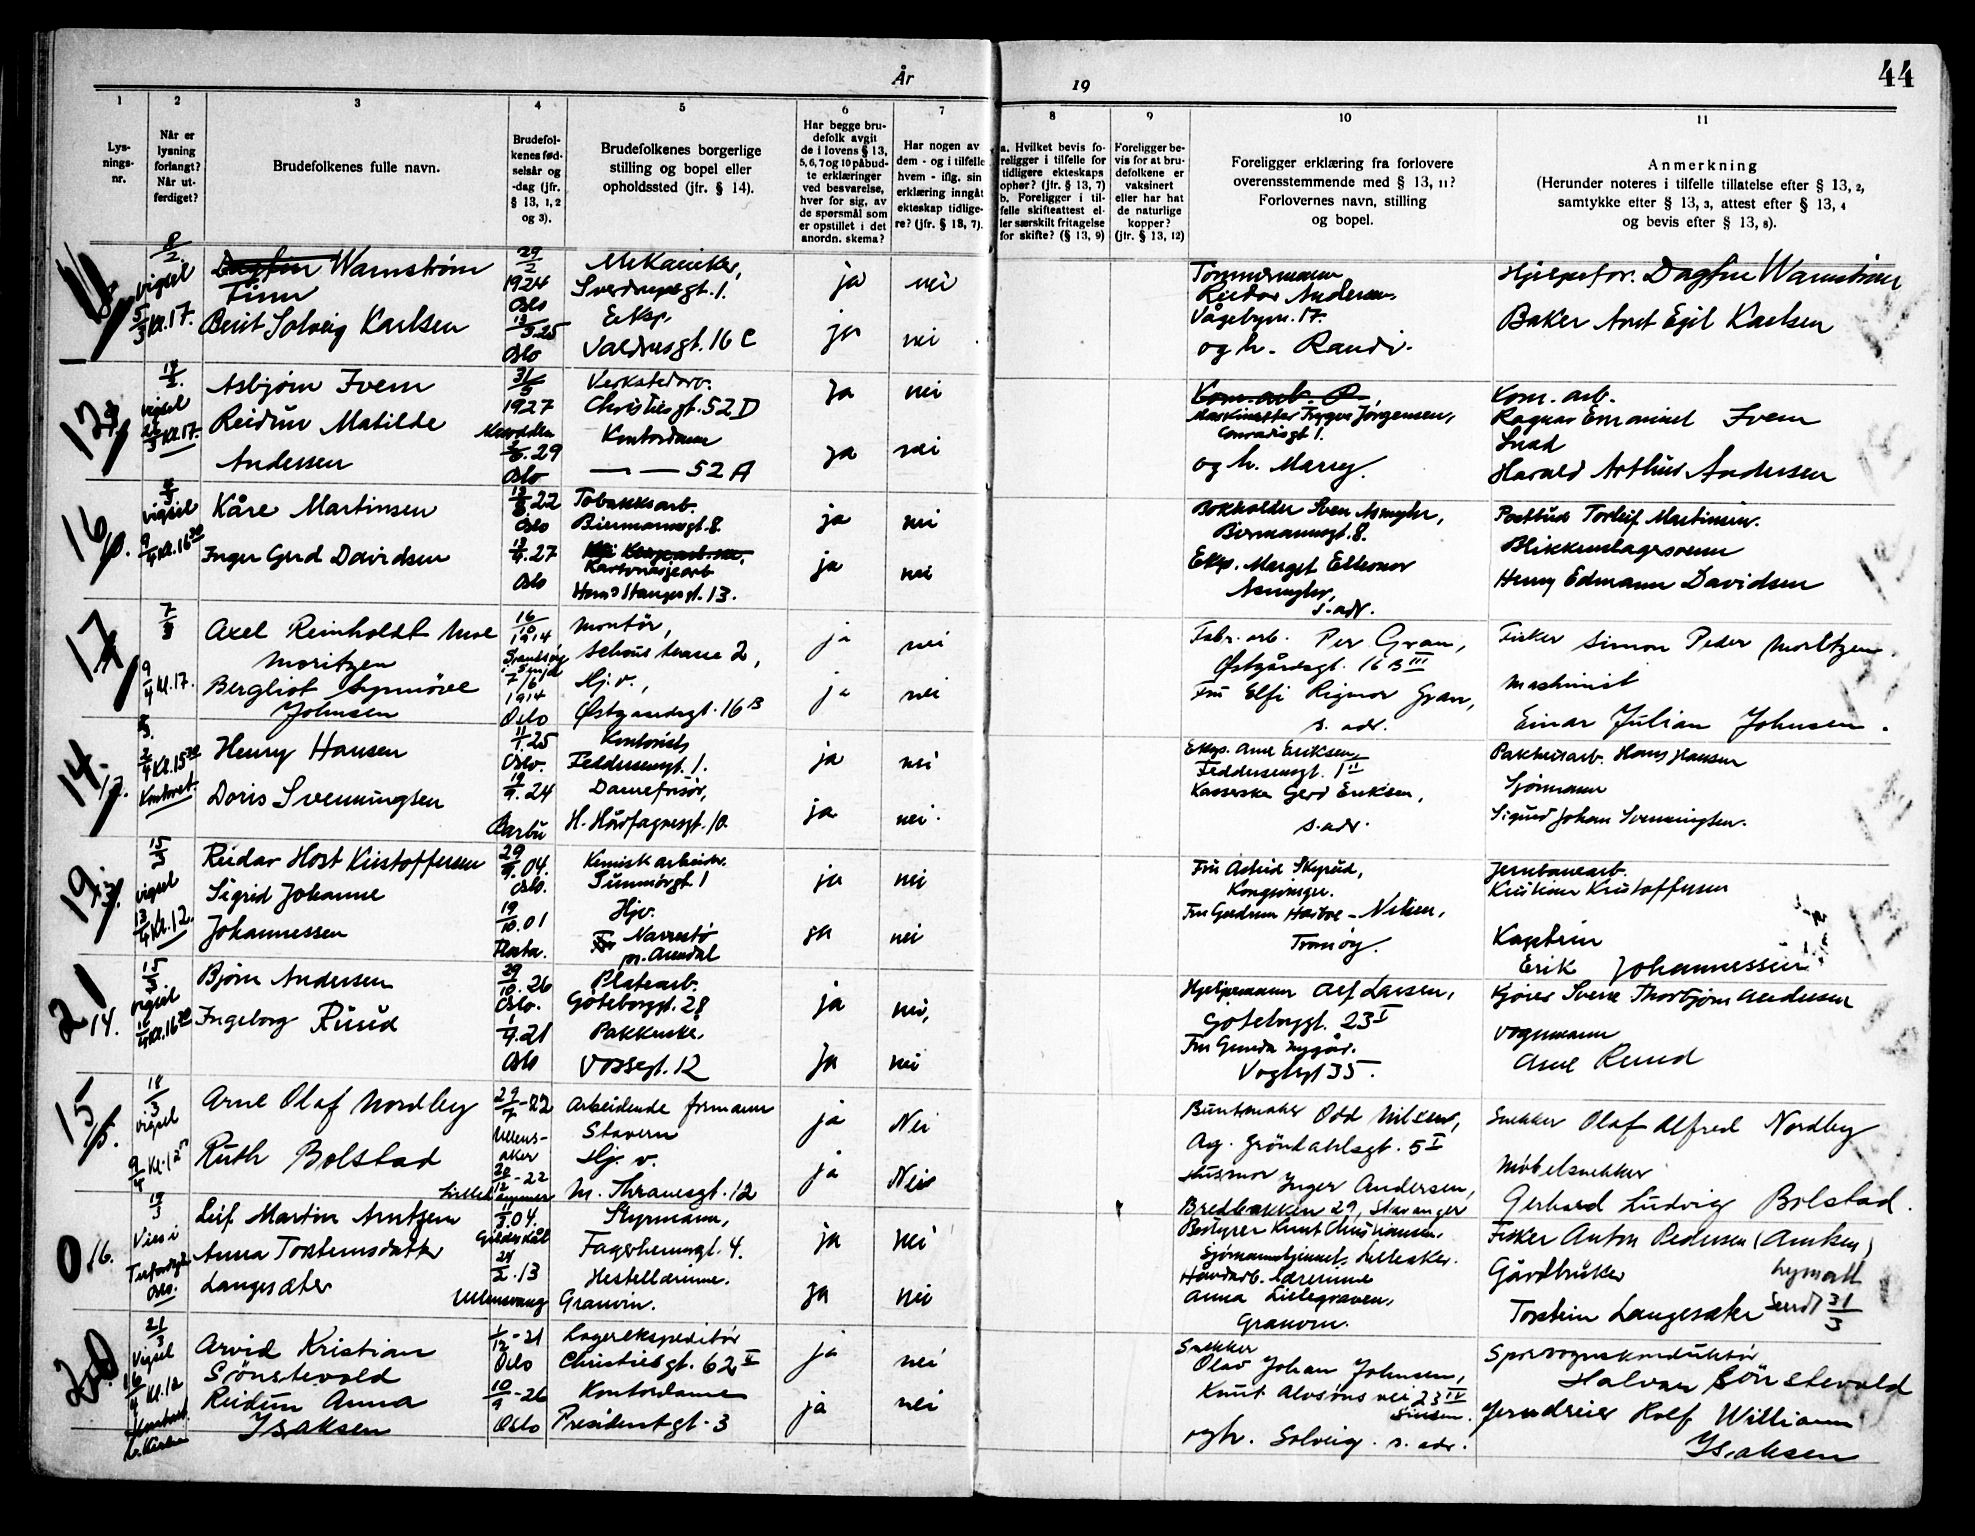 44
År
19
1
2
3
4
5
6
7
8
9
10
11
Lys-
nings-
nr.
Når er
lysning
forlangt?
Når ut-
ferdiget?
Brudefolkenes fulle navn.
Brudefol-
kenes fød-
selsår og
-dag (jfr.
§ 13, 1, 2
og 3).
Brudefolkenes borgerlige
stilling og bopel eller
opholdssted (jfr. § 14).
Har begge bru-
defolk avgit
de i lovens § 13,
5, 6, 7 og 10 påbud-
te erklæringer
ved besvarelse,
hver for sig, av
de spørsmål som
er opstillet i det
anordn. skema?
Har nogen av
dem - og i tilfelle
hvem - iflg. sin
erklæring inngått
ekteskap tidlige-
re? (jfr. § 13, 7).
a. Hvilket bevis fo-
religger i tilfelle for
tidligere ekteskaps
ophør? (jfr. § 13, 7)
b. Foreligger i til-
felle skifteattest el-
ler særskilt fritagelse
for skifte? (§ 13, 9)
Foreligger be-
vis for at bru-
defolkene er
vaksinert
eller har hat
de naturlige
kopper?
(jfr. § 13, 12)
Foreligger erklæring fra forlovere
overensstemmende med § 13, 11?
Forlovernes navn, stilling
og bopel.
Anmerkning
(Herunder noteres i tilfelle tillatelse efter § 13, 2,
samtykke efter § 13, 3, attest efter § 13, 4
og bevis efter § 13, 8).
8/2. vigsel 5/3 kl. 17.
Dagfinn Warnstrøm
Finn
Berit Solveig Karlsen
29/2
1924
Oslo
Mekaniker,
Sverdrupsgt. 1.
ja
nei
Eksp.
Valdresgt. 16 C
ja
nei
Tømmermann
Reidar Andersen.
Vågebyn. 17.
og h. Randi.
Hjelpefor. Dagfin Warnstrøm
Baker Arnt Egil Karlsen
vigsel
Asbjørn Ivem
Reidun Matilde
Andersen
31/5
1927
29
Oslo
Verkstedarb.
Christiesgt. 52 D
Kontordame
— — 52 A
ja
nei
ja
nei
Kom. arb. R.
Maskinsetter Trygve Jørgensen,
Conradisgt 1.
og h. Marry.
Kom. arb.
Ragnar Emanuel Ivem
Harald Arthur Andersen
16
vigsel
9/4 kl. 16 30
Kåre Martinsen
Inger Gerd Davidsen
22
Oslo
27
Oslo
Tobakksarb.
Biermannsgt. 8.
Kartonasjearb
Hans Stangesgt. 13.
ja
nei
ja
nei
Bokholder Sven Asmyhr,
Biermannsgt. 8.
Eksp. Margit Elleonor
Asmyhr,
s. adr.
Postbud Torleif Martinsen.
Blikkenslagersvenn
Henry Edmann Davidsen
17
7/3
9/4 kl. 17.
Axel Reinholdt Moe
Moritzen
Bergliot Synnöve
Johnsen
16/10
1914
7/6
1914
Oslo
Montör,
Schous terasse 2,
Hj. v.,
Østgaardsgt. 16 B
ja
nei
ja
nei
Fabr. arb. Per Gran,
Østgårdsgt. 16 B III
Fru Elfi Rigmor Gran,
s. adr.
Fisker Simon Peder Moritzen.
Maskinist
Einar Julian Johnsen.
14
2/4 kl. 15 30
Kontoret
Henry Hansen
Doris Svenningsen
11/1. 25
Oslo.
19/9. 24
Barbu
Kontorist,
Feddersensgt. 1.
Damefrisör,
H. Hårfagresgt. 10.
ja
nei
ja
nei.
Eksp. Arne Eriksen,
Feddersensgt. 1 II
Kasserske Gerd Eriksen,
s. adr.
Pakkhusarb. Hans Hansen
Sjømann
Sigurd Johan Svenningsen.
19
13.
15/3
vigsel
13/4 kl. 12.
Reidar Host Kristoffersen
Sigrid Johanne
Johannessen
29/9. 04.
Oslo.
19/10. 01
Kemisk arbeider.
Sunnmørgt. 1
Hjv.
Narrestø
pr. Arendal
ja
nei
ja
nei
Fru Astrid Skyrud,
Kongsvinger.
Fru Gudrun Hartvo-Nilsen,
Tromøy.
Jernbanearb.
Kristian Kristoffersen
Kaptein
Erik Johannessen
21
14.
15/3
vigsel
kl. 16 30
Bjørn Andersen
Ingeborg Ruud
29/10. 26
Oslo.
1/9. 21
Oslo
Platearb.
Göteborggt. 28
Pakkerske.
Vossegt. 12
ja
nei,
ja
nei
Hjelpemann Alf Larsen,
Gøteborggt. 23 I
Fru Gunda Nygår.
Vogtsgt 35.
Kjører Sverre Thorbjørn Andersen
Vognmann
Arne Ruud
15
18/3
vigsel
9/4 kl. 12
Arne Olaf Nordby
Ruth Bolstad
29/7-22
Ullens-
aker
20/12-22
Lillehammer
Arbeidende formann
Stavern
Hj. v.
M. Thranesgt. 12
ja
Nei
ja
Nei
Buntmaker Odd Nilsen,
Ag. Gröndahlsgt. 5 I
Husmor Inger Andersen,
Bredbakken 29, Stavanger
Snekker Olaf Alfred Nordby
Møbelsnekker
Gerhard Ludvig Bolstad.
0 16.
19/3
Vies i
Oslo.
Leif Martin Arntzen
Anna Torsteinsdatter
Langesæter
11/3. 04.
Gildeskål
24/2. 13
Ullensvang
Styrmann,
Fagerheimsgt. 4.
Hestellærinne.
Granvin.
ja
nei
ja
nei
Bestyrer Knut Christiansen,
Sjømannshjemmet, Lilleaker.
Håndarb. lærerinne
Anna Lillegraven,
Granvin.
Fisker Anton Pedersen (Arntsen)
Gårdbruker
Torstein Langesæter
Sendt 31/3
20
21/3
Vigsel
16/4 kl. 12
Arvid Kristian
Sönstevold
Reidun Anna
Isaksen
1/12-21
Oslo
10/9-26
Oslo
Lagerekspeditör
Christiesgt. 62 V
Kontordame
Presidentgt. 3
ja
nei
ja
nei
Snekker
Olav Johan Johnsen,
Knut Alvsöns vei 23 IV
Sinsen.
og h. Solveig. s. adr.
Sporvognskonduktör
Halvor Sönstevold
Jerndreier Rolf William
Isaksen